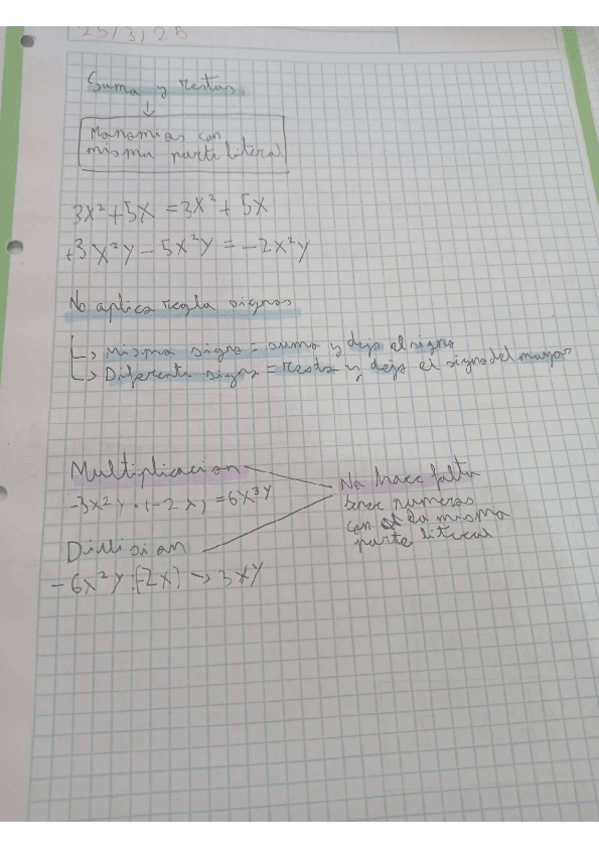 25/3/25
Suma y restas
↓
Monomios con
misma parte literal
3x²+5x =3x²+ 5x
+3x²y - 5x²y = -2x²y
No aplica regla signos
↳ Mismo signo = suma y dejo el signo
↳ Diferente signo = resta y dejo el signo del mayor
Multiplicacion
-3x²y · (-2x) = 6x³y
No hace falta
tener numeros
con la misma
parte literal
Division
- 6x²y:(-2x) → 3xy